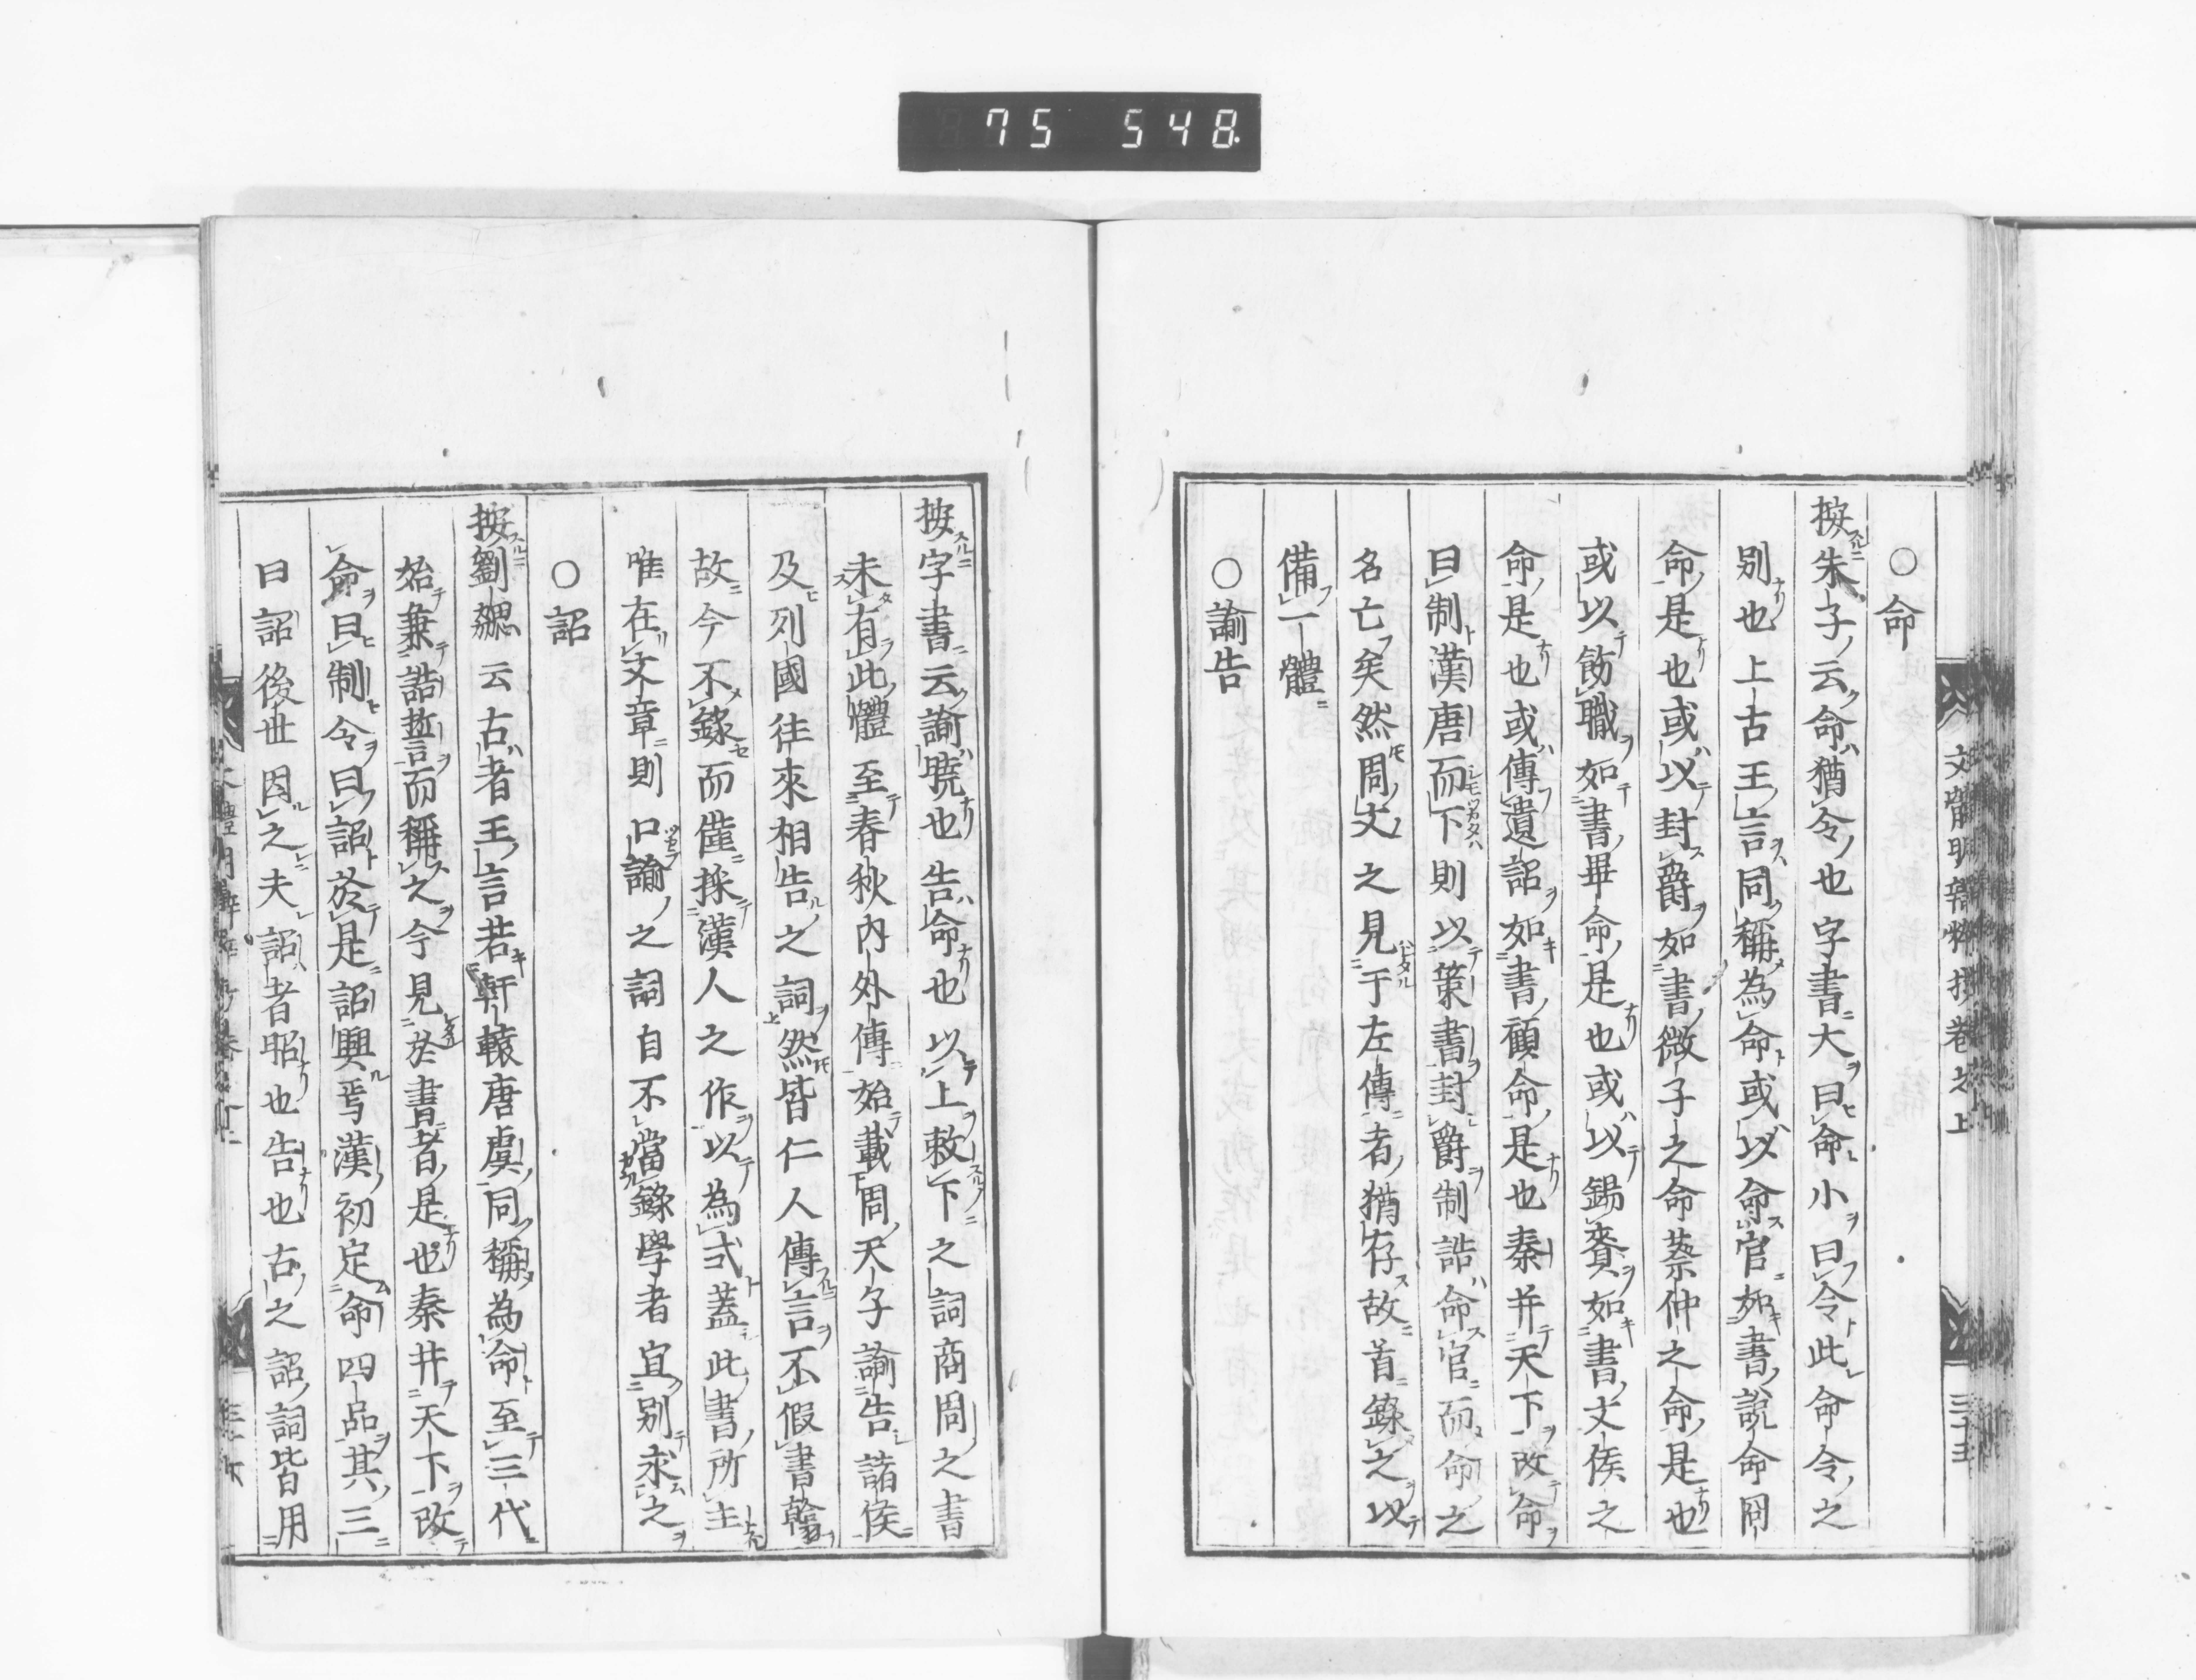 75 548
○命
按朱子云命猶令也字書大曰命小曰令此命令之
别也上古王言同稱為命或以命官如書說命冏
命是也或以封爵如書微子之命蔡仲之命是也
或以飭職如書畢命是也或以錫賚如書文侯之
命是也或傳遺詔如書顧命是也秦并天下改命
曰制漢唐而下則以策書封爵制誥命官而命之
名亡矣然周文之見于左傳者猶存故首錄之以
備一體
○諭告
三十五
按字書云諭曉也告命也以上敕下之詞商周之書
未有此體至春秋內外傳始載周天子諭告諸侯
及列國往來相告之詞然皆仁人傳言不假書翰
故今不錄而僅採漢人之作以為式蓋此書所主
唯在文章則口諭之詞自不當錄學者宜别求之
○詔
按劉勰云古者王言若軒轅唐虞同稱為命至三代
始兼誥誓而稱之今見於書者是也秦并天下改
命曰制令曰詔於是詔興焉漢初定命四品其三
曰詔後世因之夫詔者昭也告也古之詔詞皆用